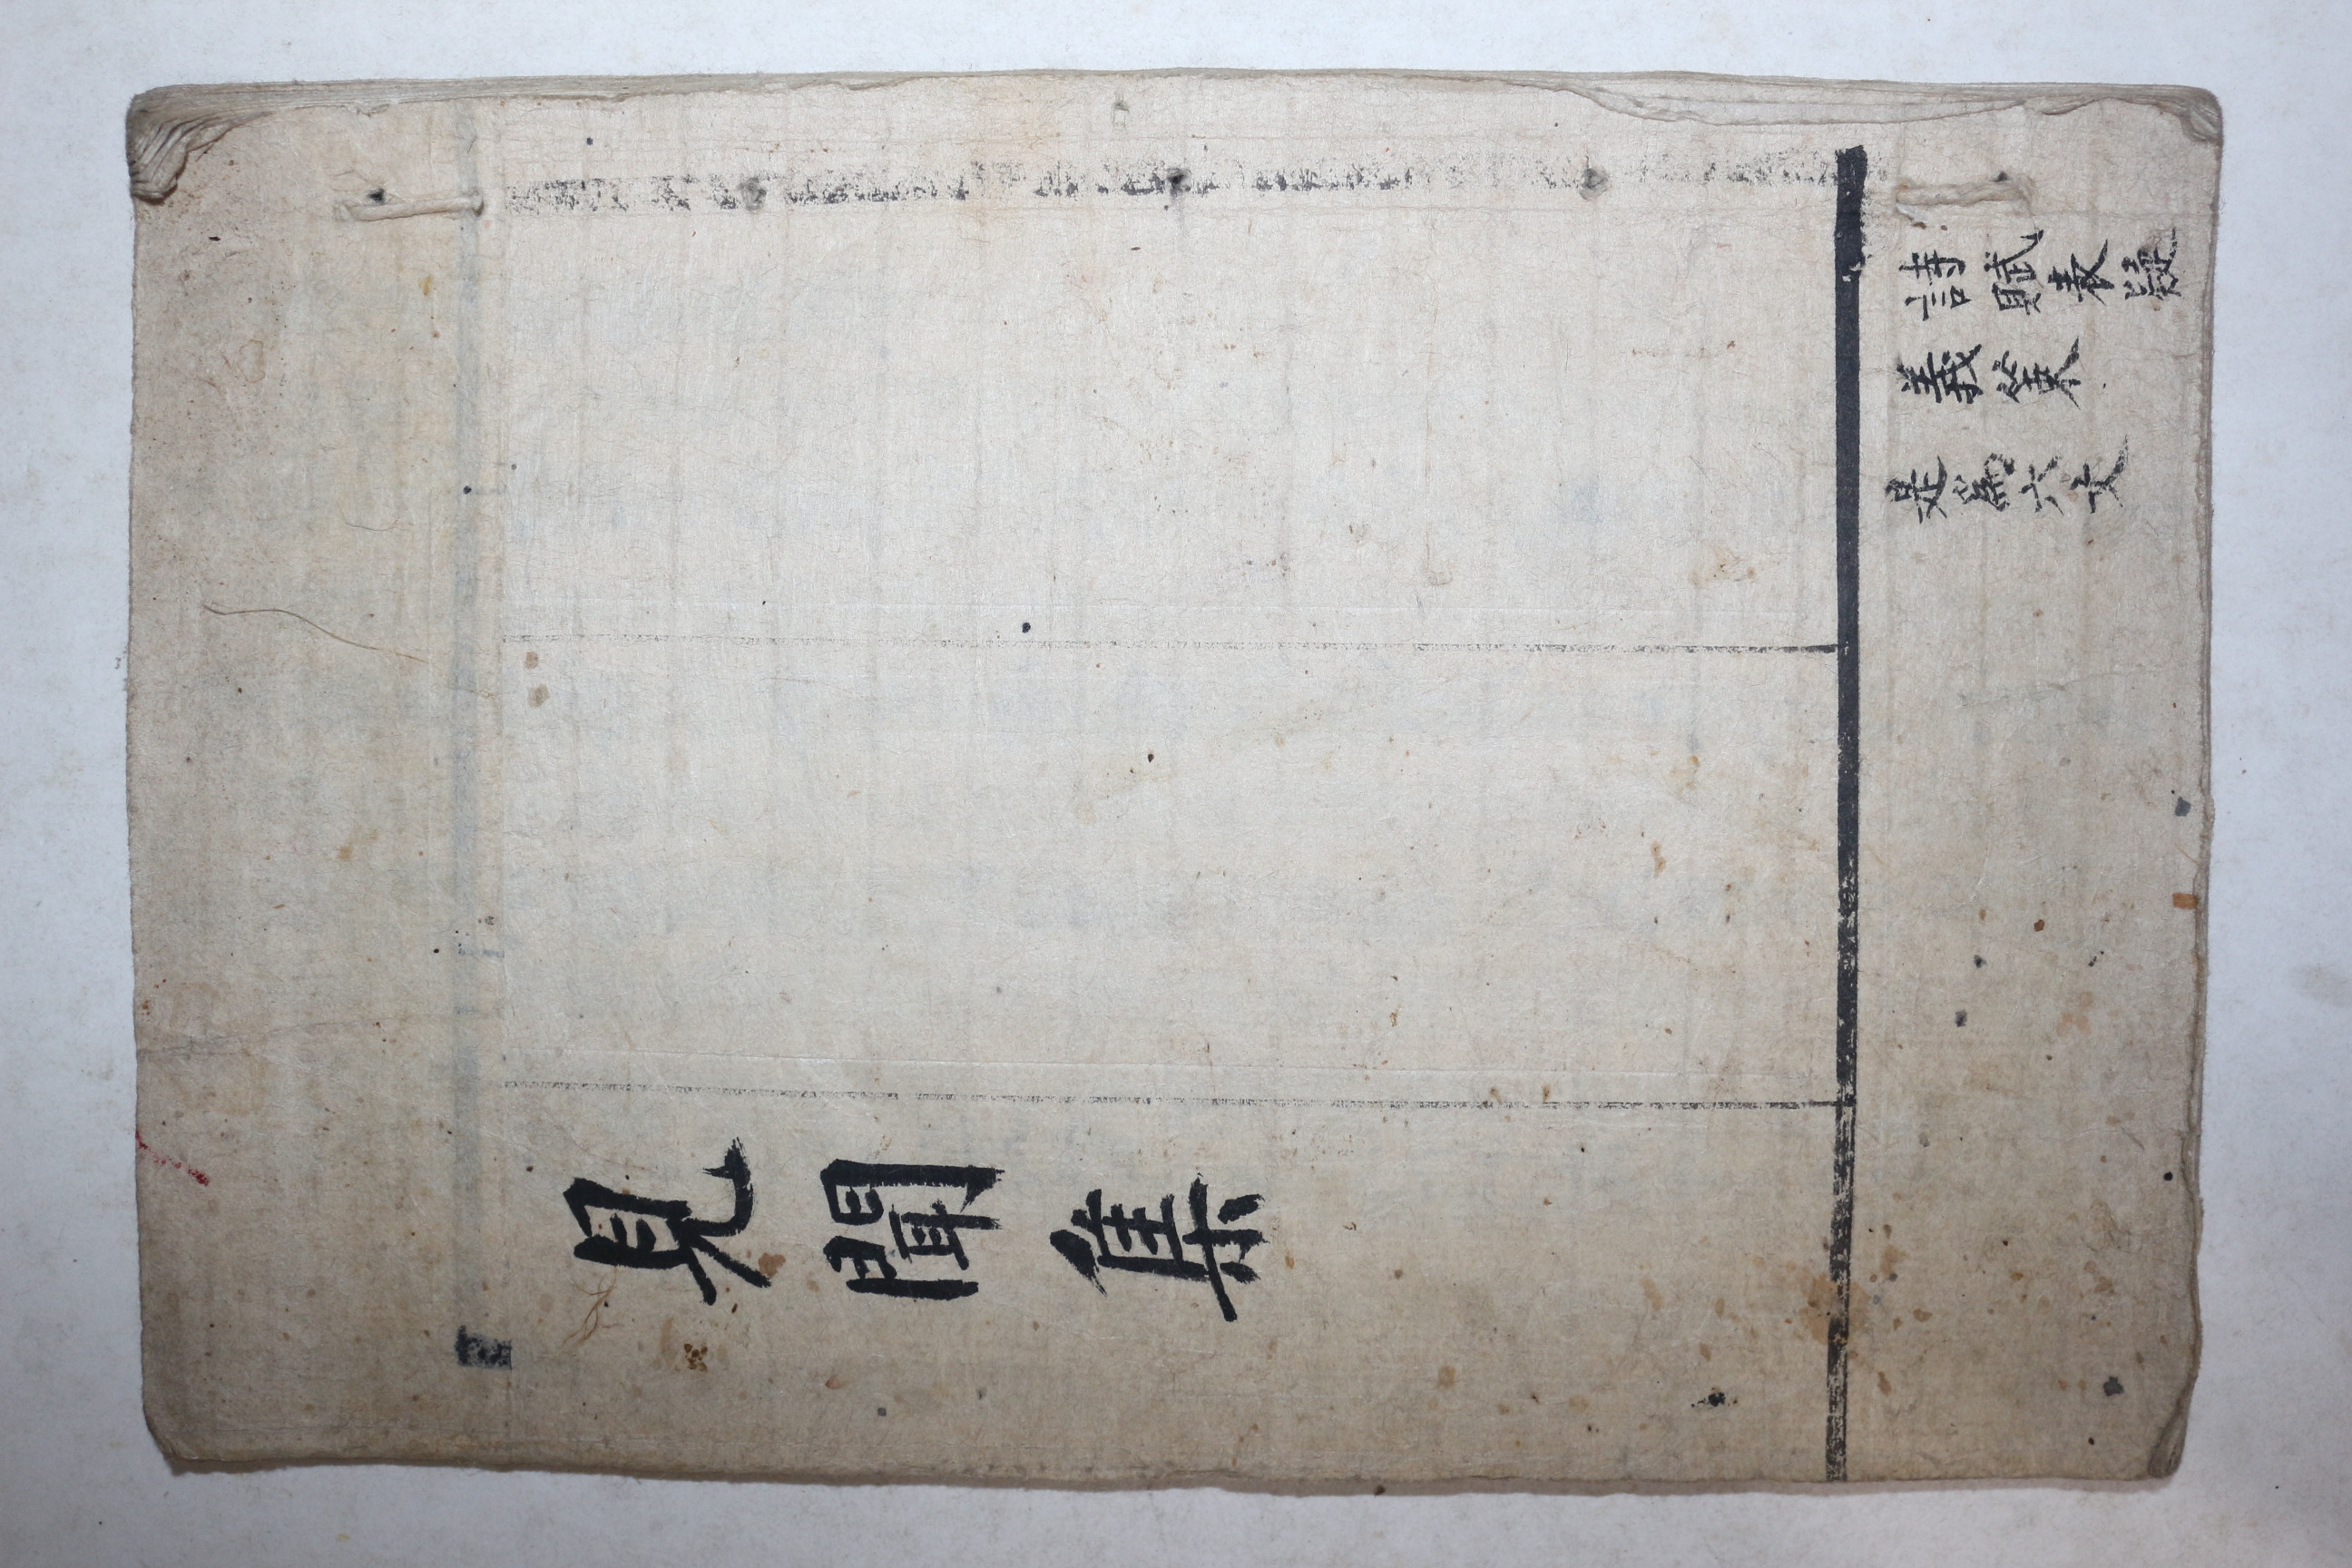 見聞集
詩賦表疑
義策
是爲六文